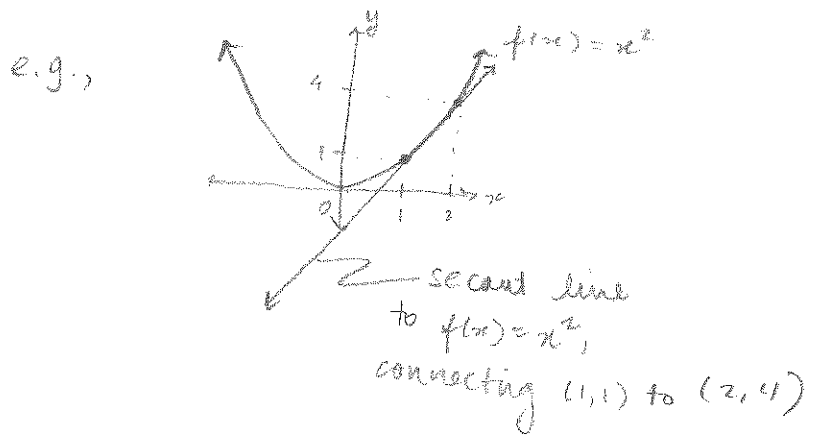 y
f(x) = x²
e.g.,
4
1
0
1 2 x
secant line
to f(x) = x²,
connecting (1,1) to (2,4)